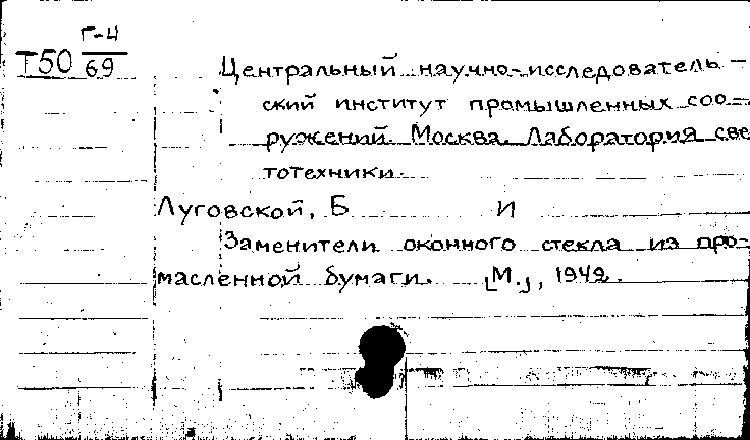 Г-4
Т50 69
Центральный научно-исследователь-
ский институт промышленных соо-
ружений. Москва. Лаборатория све
тотехники.
Луговской, Б И
Заменители оконного стекла из про-
масленной бумаги. [М.], 1942.